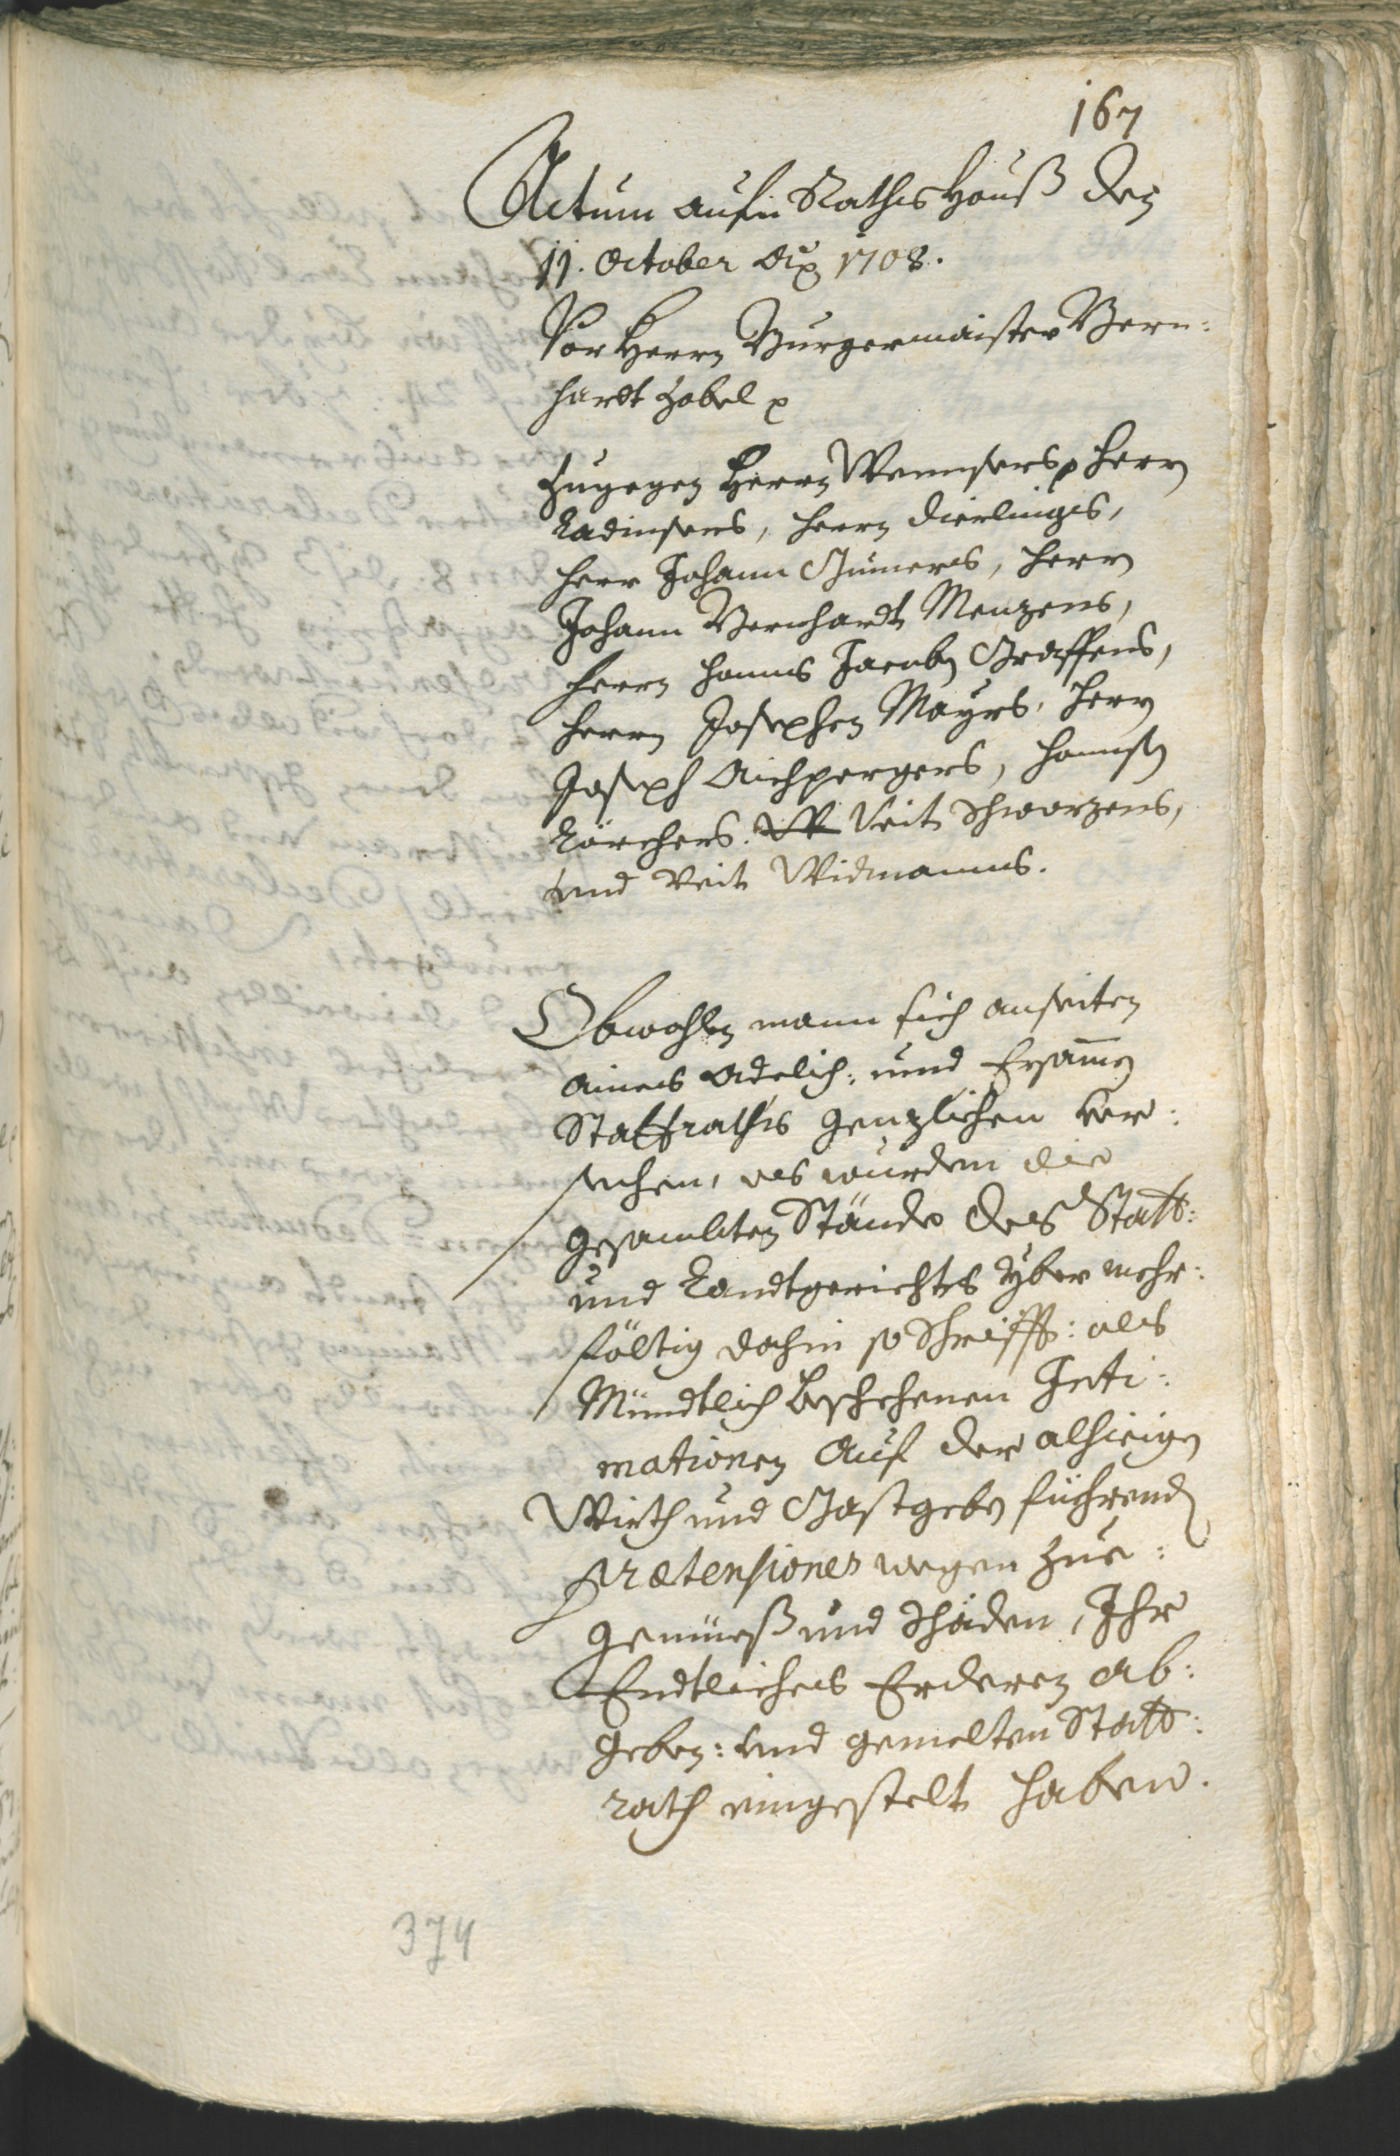 167
Actum aufm Rathshauß den
11. October Ao 1708.
Vor Herrn Burgermaister Bern:
hardt Zobel p
Zugegen Herrn Wennsers, Herrn
Ladinsers, Herrn Dierlings,
Herr Johann Gumers, Herrn
Johann Bernhardt Menzens,
Herrn Hanns Jacoben Graffens,
Herrn Josephen Mayrs, Herrn
Joseph Aichpergers, Hannsen
Lärchers. Veit Schwarzens,
und Veit Widmanns.
Obwohlen mann sich anseiten
aines Adelich: und Ersamen
Stattraths genzlichen ver:
sechen, es wurden die
gesambten Stände des Statt:
und Landtgerichts yber mehr:
fältig dahin so Schrifft: als
Mündtlich beschehenen Inti:
mationen auf der alhieigen
Wirth und Gastgeben fiehrend
prætensiones wegen Zue:
gemueß und Schäden, Ihr
Endtliches Erderen ab:
geben: und gemelten Statt:
rath eingestelt haben.
374